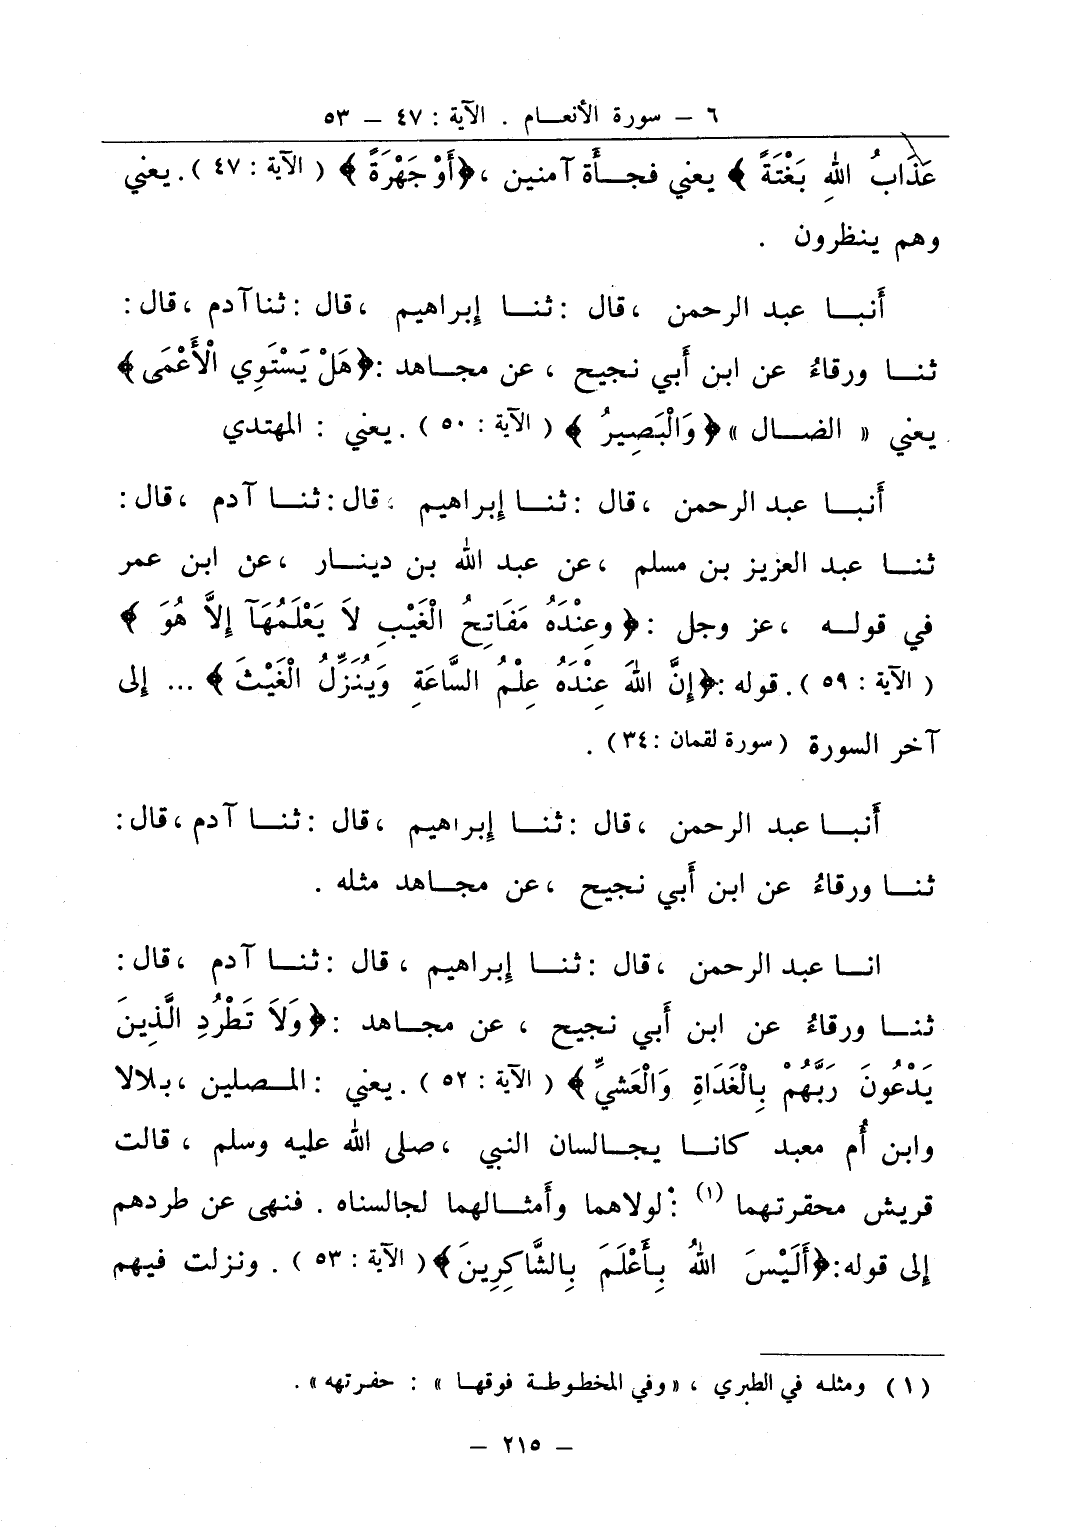 ٦ – سورة الأنعـــام . الآية : ٤٧ – ٥٣
عَذَابُ اللهِ بَغْتَةً ﴾ يعني فجـــأة آمنين ، ﴿أَوْ جَهْرَةً ﴾ ( الآية : ٤٧ ) . يعني
وهم ينظرون .
أنبـــا عبد الرحمن ، قال : ثنـــا إبراهيم ، قال : ثنا آدم ، قال :
ثنـــا ورقاءُ عن ابن أبي نجيح ، عن مجـــاهد : ﴿هَلْ يَسْتَوِي الْأَعْمَى﴾
يعني « الضـــال » ﴿ وَالْبَصِيرُ ﴾ ( الآية : ٥٠ ) . يعني : المهتدي
أنبـــا عبد الرحمن ، قال : ثنـــا إبراهيم ، قال : ثنـــا آدم ، قال :
ثنـــا عبد العزيز بن مسلم ، عن عبد الله بن دينـــار ، عن ابن عمر
في قولـــه ، عز وجل : ﴿ وعِنْدَهُ مَفَاتِحُ الْغَيْبِ لاَ يَعْلَمُهَآ إِلاَّ هُوَ ﴾
( الآية : ٥٩ ) . قوله : ﴿إِنَّ اللهَ عِنْدَهُ عِلْمُ السَّاعَةِ وَيُنَزِّلُ الْغَيْثَ ﴾ ... إلى
آخر السورة ( سورة لقمان : ٣٤ ) .
أنبـــا عبد الرحمن ، قال : ثنـــا إبراهيم ، قال : ثنـــا آدم ، قال :
ثنـــا ورقاءُ عن ابن أبي نجيح ، عن مجـــاهد مثله .
انـــا عبد الرحمن ، قال : ثنـــا إبراهيم ، قال : ثنـــا آدم ، قال :
ثنـــا ورقاءُ عن ابن أبي نجيح ، عن مجـــاهد : ﴿وَلاَ تَطْرُدِ الَّذِينَ
يَدْعُونَ رَبَّهُمْ بِالْغَدَاةِ وَالْعَشِيِّ ﴾ ( الآية : ٥٢ ) . يعني : المـــصلين ، بـلالا
وابن أُم معبد كانـــا يجـــالسان النبي ، صلى الله عليه وسلم ، قالت
قريش محقرتهما (١) : لولاهما وأمثـــالهما لجالسناه . فنهى عن طردهم
إلى قوله: ﴿أَلَيْسَ اللهُ بِأَعْلَمَ بِالشَّاكِرِينَ﴾ ( الآية : ٥٣ ) . ونزلت فيهم
(١) ومثلـه في الطبري ، «وفي المخطوطـة فوقهـا » : حفرتهه» .
– ٢١٥ –